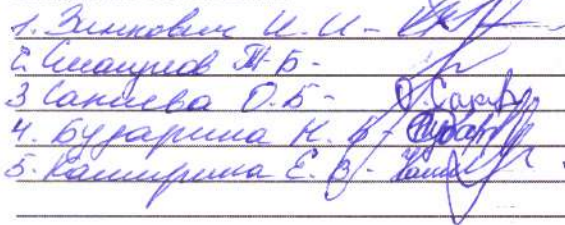 1. Зинкович И.И -
2. Смагулов Т.Б -
3 Сапиева О.Б -
4. Бударина Н.Б -
5. Каширина Е.В -